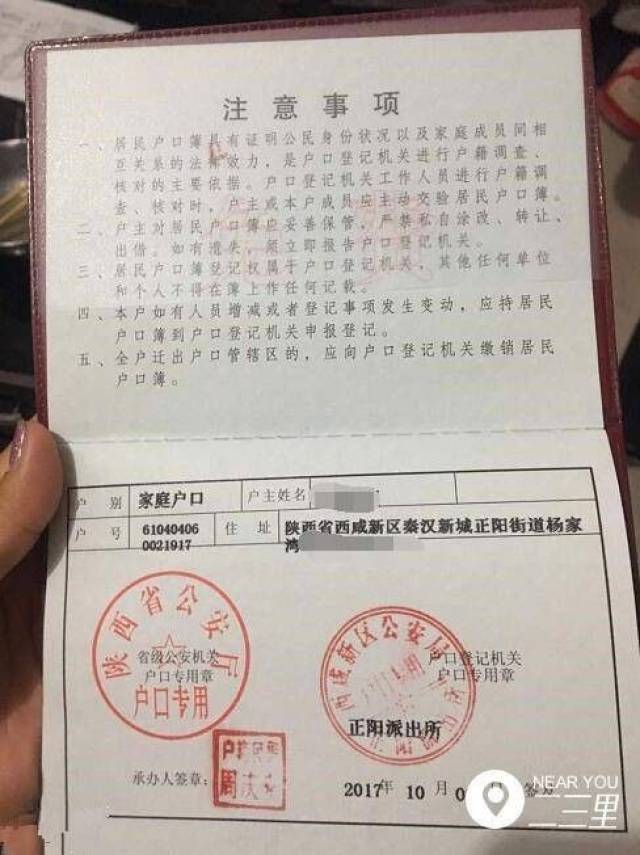 注意事项
一、居民户口簿具有证明公民身份状况以及家庭成员间相
互关系的法律效力，是户口登记机关进行户籍调查、
核对的主要依据。户口登记机关工作人员进行户籍调
查、核对时，户主或本户成员应主动交验居民户口簿。
二、户主对居民户口簿应妥善保管，严禁私自涂改、转让、
出借。如有遗失，须立即报告户口登记机关。
三、居民户口簿登记权属于户口登记机关，其他任何单位
和个人不得在簿上作任何记载。
四、本户如有人员增减或者登记事项发生变动，应持居民
户口簿到户口登记机关申报登记。
五、全户迁出户口管辖区的，应向户口登记机关缴销居民
户口簿。
户别 家庭户口 户主姓名
户号 61040406 住址 陕西省西咸新区秦汉新城正阳街道杨家
0021917 湾
陕西省公安厅
省级公安机关 户口登记机关
户口专用章 户口专用章
户口专用
西咸新区公安局
正阳派出所
承办人签章：
2017年 10 月 0
NEAR YOU
二三里